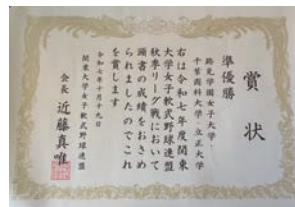 賞状
準優勝
路見学園女子大学・
千葉商科大学・立正大学
右は令和七年度関東
大学女子軟式野球連盟
秋季リーグ戦において
頭書の成績をおさめ
られましたのでこれ
を賞します
令和七年十月十九日
関東大学女子軟式野球連盟
会長 近藤真唯